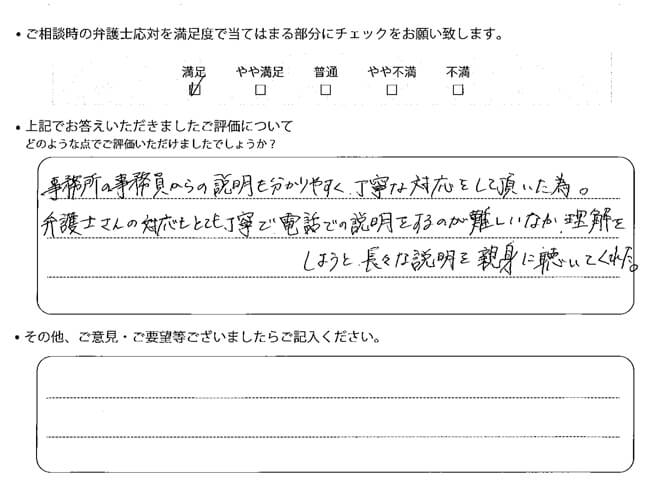 • ご相談時の弁護士応対を満足度で当てはまる部分にチェックをお願い致します。
満足 やや満足 普通 やや不満 不満
☑ □ □ □ □
• 上記でお答えいただきましたご評価について
どのような点でご評価いただけましたでしょうか？
事務所の事務員からの説明も分かりやすく、丁寧な対応をして頂いた為。
弁護士さんの対応もとても丁寧で電話での説明をするのが難しいなか、理解を
しようと、長々な説明を親身に聴いてくれた。
• その他、ご意見・ご要望等ございましたらご記入ください。